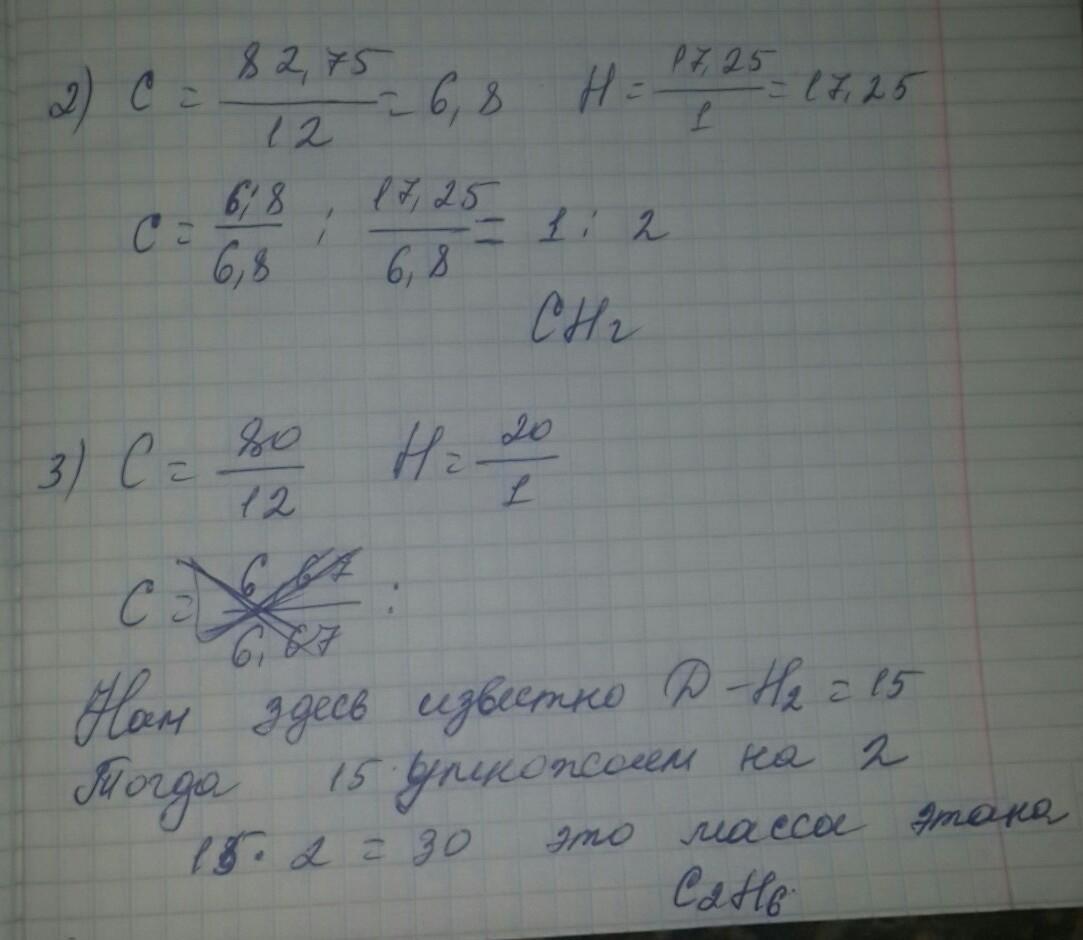 2) C = 82,75/12 = 6,8 H = 17,25/1 = 17,25
C = 6,8/6,8 : 17,25/6,8 = 1 : 2
CH2
3) C = 80/12 H = 20/1
C = 6,67/6,67 :
Нам здесь известно D-H2 = 15
Тогда 15 умножаем на 2
15 · 2 = 30 это масса этана
C2H6